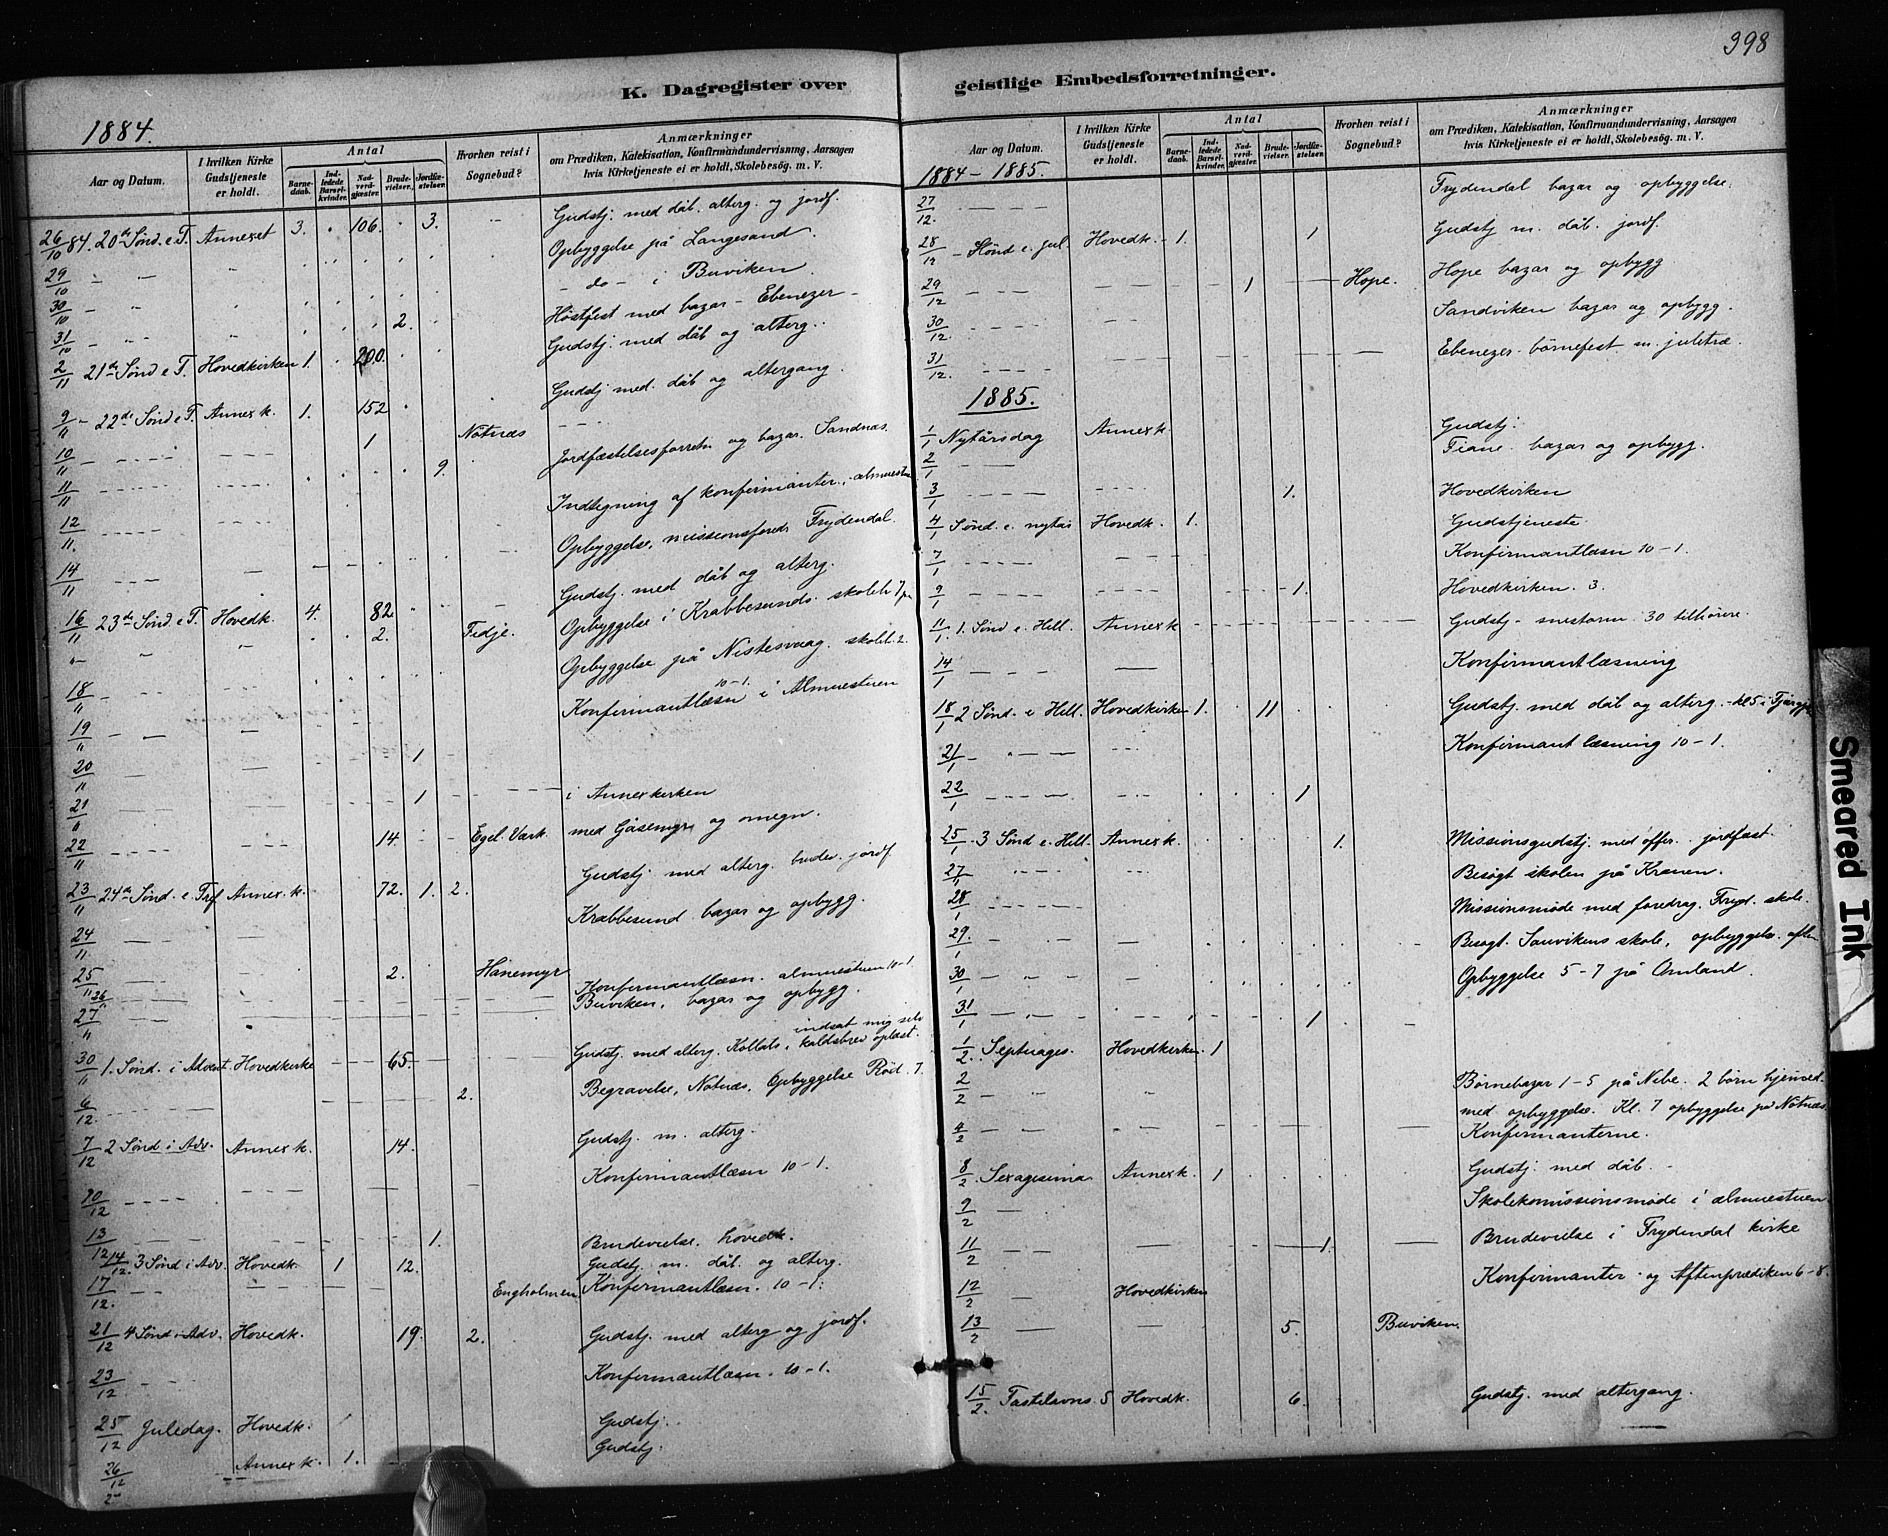 398
K. Dagregister over
geistlige Embedsforretninger.
1884.
Aar og Datum.
I hvilken Kirke Gudstjeneste er holdt.
Antal
Barnedaab.
Indledede Barselkvinder.
Nadverdgjester.
Brudevielser.
Jordfæstelser.
Hvorhen reist i Sognebud?
Anmærkninger
om Prædiken, Katekisation, Konfirmandundervisning, Aarsagen
hvis Kirketjeneste ei er holdt, Skolebesøg. m. V.
26/10 84. 20de Sönd. e. T. Annexet 3. 106. 3. Gudstj. med dåb. alterg. og jordf.
29/10 Opbyggelse på Langesand.
30/10 - do - i Buviken.
31/10 2. Höstfest med bazar - Ebenezer -
2/11 21de Sönd e T. Hovedkirken 1. 200. Gudstj. med dåb og alterg.
9/11 - 22de Sönd e T. Annexk. 1. 152 Gudstj med. dåb og altergang.
10/11 1 Notnæs
11/11 9. Jordfæstelsesforretn og bazar. Sandnæs.
12/11. Indtegning af konfirmanter.
14/11 Opbyggelse, missionsfored. Frydendal.
16/11 23de Sönd. e T. Hovedk. 4. 82 Gudstj. med dåb og alterg.
„ - „ 2. Fidje. Opbyggelse i Krabbesunds skoleh
18/11 Opbyggelse på Nistesvaag. skoleh.
19/11 Konfirmantlæsn 10-1. i Almuestuen
20/11 1
21/11 1 i Annexkirken
22/11 14. Egel. Værk. med Gåsemyr og omegn.
23/11 24de Sönd. e. Tref Annex. k. 72. 1. 2. Gudstj med alterg. brudev. jordf.
24/11 Krabbesund bazar og opbygg.
25/11 2. Hånemyr
26/11 Konfirmantlæsn. almuestuen 10-1
27/11 Buviken, bazar og opbygg.
30/11 1. Sönd. i Advent. Hovedkirke 65. Gudstj. med alterg. Kollats, kaldsbrev oplæst. indsat mig selv
6/12. 2. Begravelse, Notnæs, Opbyggelse Röd. 7.
7/12 2 Sönd i Adv. Annexk. 14. Gudstj. m. alterg.
10/12 Konfirmantlæsn 10-1.
13/12 1. Brudevielse. hovedk.
14/12. 3 Sönd i Adv. Hovedk. 1 12. Gudstj. m. dåb. og alterg.
17/12. Engholmen Konfirmantlæsn. 10-1.
21/12 4 Sönd. i Adv. Hovedk. 19. 2. Gudstj. med alterg og jordf.
23/12. Konfirmantlæsn. 10-1.
25/12 Juledag. Hovedk. Gudstj.
26/12 Annexk. 1. Gudstj.
Aar og Datum.
I hvilken Kirke Gudstjeneste er holdt.
Antal
Barnedaab.
Indledede Barselkvinder.
Nadverdgjester.
Brudevielser.
Jordfæstelser.
Hvorhen reist i Sognebud?
Anmærkninger
om Prædiken, Katekisation, Konfirmandundervisning, Aarsagen
hvis Kirketjeneste ei er holdt, Skolebesøg. m. V.
1884 - 1885.
27/12. Frydendal bazar og opbyggelse.
28/12 - Sönd e. Jul. Hovedk. 1. 1 Gudstj m. dåb. jordf.
29/12 1 Hope. Hope bazar og opbygg
30/12. Sandviken bazar og opbygg.
31/12. Ebenezer. börnefest m. juletræ.
1885.
1/1 Nytårsdag Annexk Gudstj.
2/1 Fiane bazar og opbygg.
3/1 1. Hovedkirken
4/1 Sönd. e. nytår Hovedk. 1. Gudstjeneste
7/1 Konfirmantlæsn 10-1.
9/1 1. Hovedkirken. 3.
11/1. 1. Sönd e. Hell. Annexk Gudstj - snestorm 30 tilhörere.
14/1 Konfirmantlæsning
18/1 2 Sönd. e Hell. Hovedkirken 1. 11 Gudstj. med dåb og alterg. - kl 5 i
21/1 Konfirmantlæsning 10-1.
22/1 1
25/1 3 Sönd e. Hell. Annexk. 1. Missionsgudstj. med offer. jordfæst.
27/1 Besögt skolen på Kranen.
28/1 Missionsmöde med foredrag. Fryd. skole.
29/1 Besögt. Sanvikens skole, opbyggelse. aften
30/1 Opbyggelse 5-7 på Omland.
31/1 1
1/2. Septuages. Hovedkirken. 1
2/2 Börnebazar 1-5 på Nibe. 2 börn hjemmed.
med opbyggelse. Kl. 7 opbyggelse på Notnæs.
4/2 Konfirmanterne.
8/2 Sexagesima Annexk 1 Gudstj. med dåb.
9/2 Skolekomissionsmöde i almuestuen
11/2 1. Brudevielse i Frydendal kirke
12/2 Hovedkirken Konfirmanter og Aftenprædiken 6-8.
13/2 5. Buviken.
15/2. Fastelavns. S Hovedk. 6. Gudstj. med altergang.
Smeared Ink